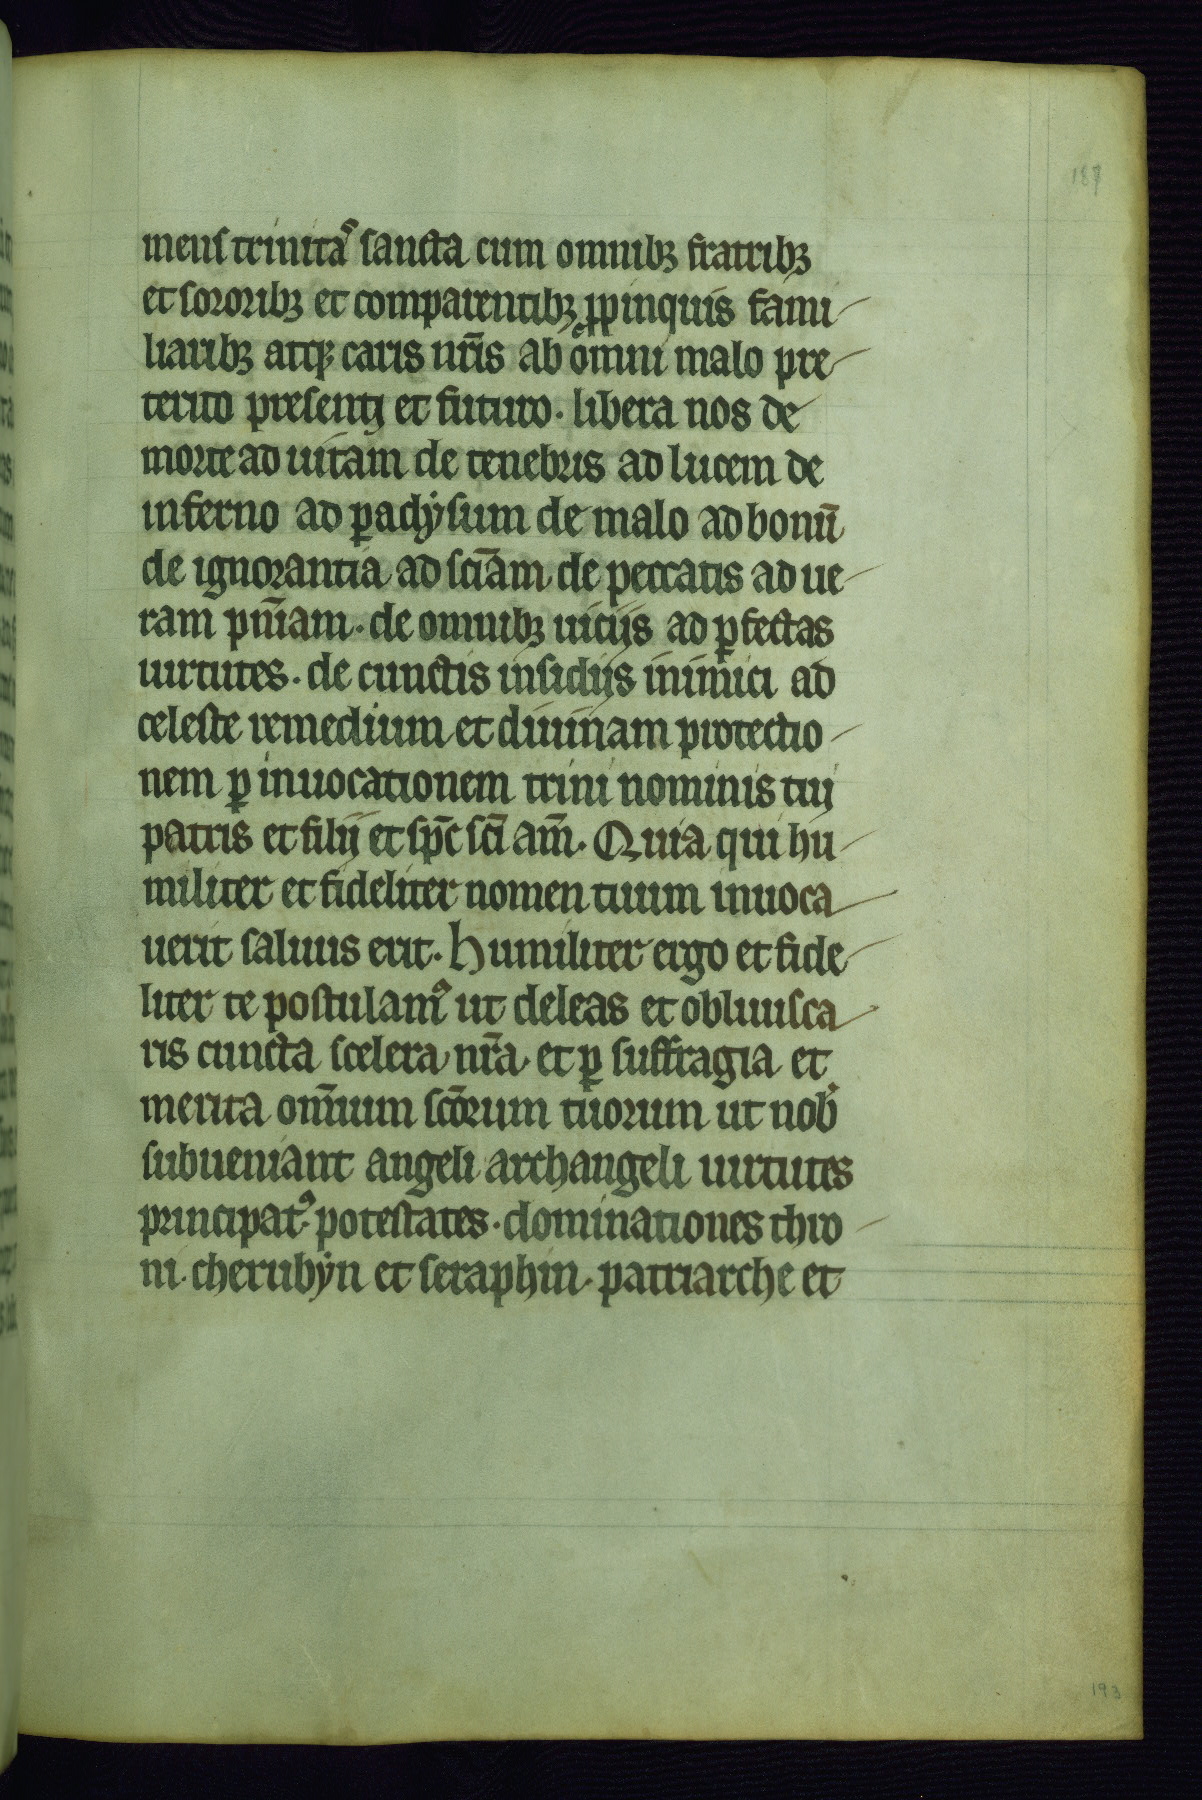 187
mens trinitaˢ sancta cum omnibꝫ fratribꝫ
et sororibꝫ et comparentibꝫ ꝓpinquis fami
liaribꝫ atqꝫ caris nr̄is ab om̄ni malo pre
terito presentj et futuro · libera nos de
morte ad uitam de tenebris ad lucem de
inferno ad ꝑadẏsum de malo ad bonū
de ignorantia ad sciām de peccatis ad ue
ram pn̄iam · de omnibꝫ uicijs ad ꝑfectas
uirtutes · de cunctis insidijs inimici ad
celeste remedium et diuinam protectio
nem ꝑ inuocationem trini nominis tuj
patris et filij et sp̄c sc̄i am̄ · Quia qui hu
militer et fideliter nomen tuum inuoca
uerit saluus erit · Humiliter ergo et fide
liter te postulamꝰ ut deleas et obliuisca
ris cuncta scelera nr̄a · et ꝑ suffragia et
merita om̄ium sc̄orum tuorum ut nob̄
subueniant angeli archangeli uirtutes
principatꝰ · potestates · dominationes thro
ni · cherubẏn et seraphin · patriarche et
193